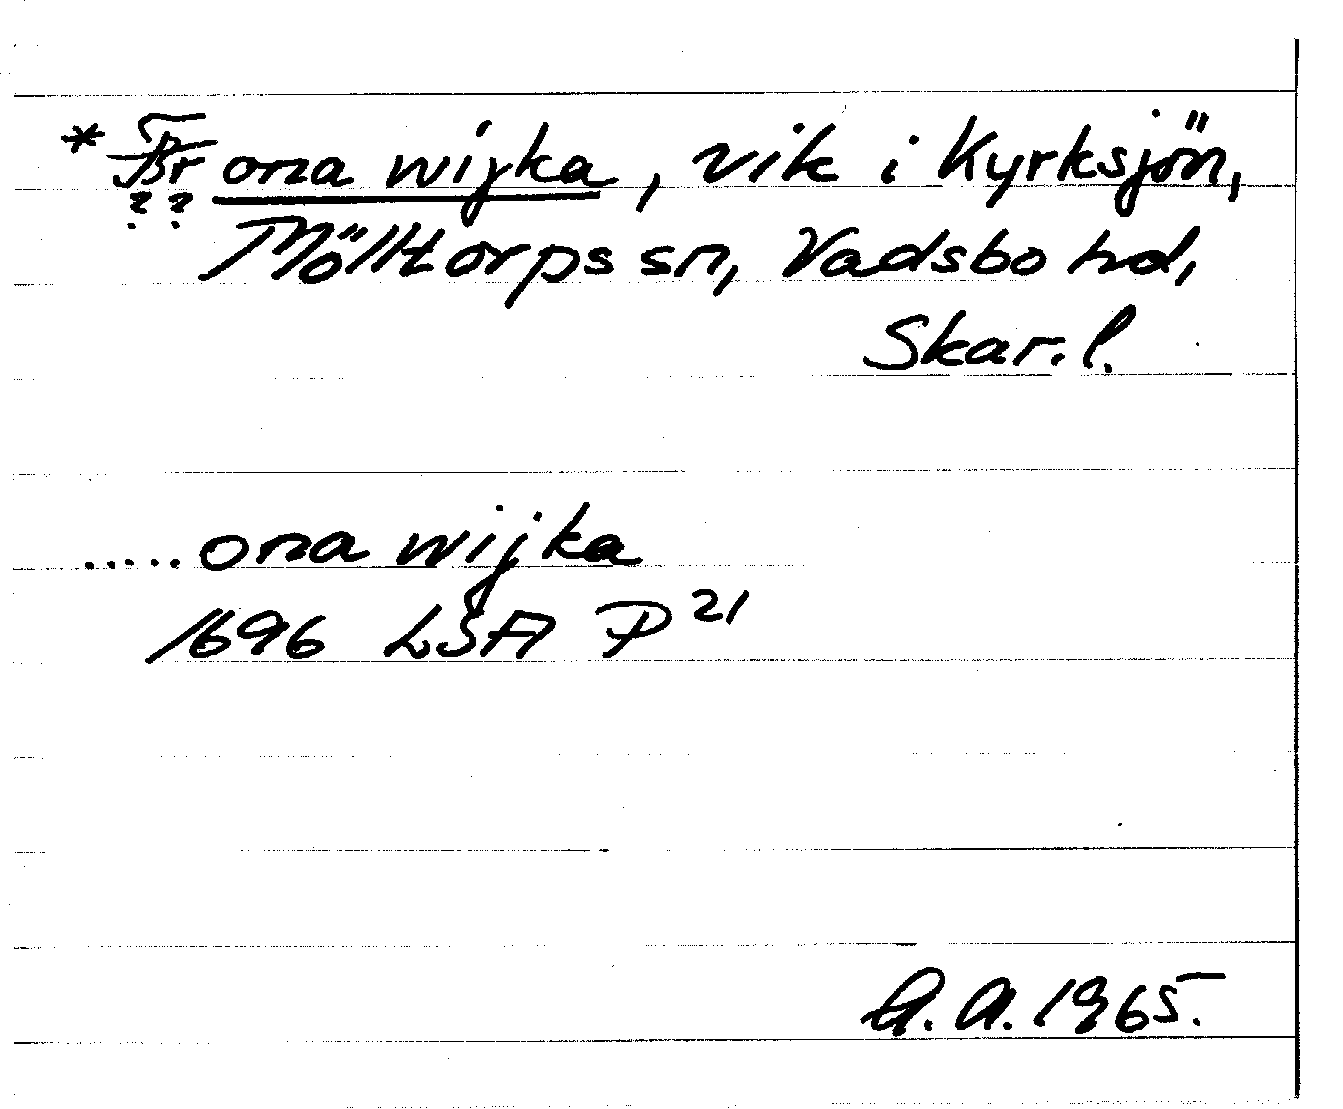 * ona wijka, vik i Kyrksjön,
? ?
Mölltorps sn, Vadsbo hd,
Skar. l.
..... ona wijka
1696 LSA P 21
A. A. 1965.